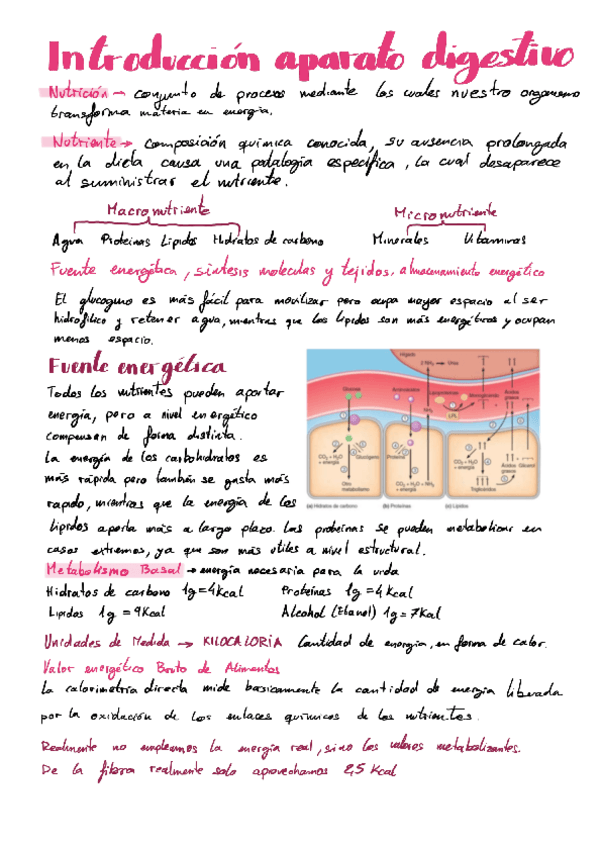 Introducción aparato digestivo
Nutrición → conjunto de procesos mediante los cuales nuestro organismo
transforma materia en energía.
Nutriente → composición química conocida, su ausencia prolongada
en la dieta causa una patología específica, la cual desaparece
al suministrar el nutriente.
Macronutriente
Micronutriente
Agua Proteínas Lípidos Hidratos de carbono Minerales Vitaminas
Fuente energética, síntesis moleculas y tejidos, almacenamiento energético
El glucogeno es más fácil para movilizar pero ocupa mayor espacio al ser
hidrofílico y retener agua, mientras que los lípidos son más energéticos y ocupan
menos espacio.
Fuente energética
Todos los nutrientes pueden aportar
energía, pero a nivel energético
compensan de forma distinta.
La energía de los carbohidratos es
más rápida pero también se gasta más
rapido, mientras que la energía de los
lípidos aporta más a largo plazo. Las proteínas se pueden metabolizar en
casos extremos, ya que son más utiles a nivel estructural.
Hígado
2 NH₃ → Urea
Glucosa
Aminoácidos
Lipoproteínas
Monoglicérido
Ácidos grasos
LPL
NH₃
CO₂ + H₂O + energía
Glucógeno
Otro metabolismo
Proteína
CO₂ + H₂O + NH₃ + energía
CO₂ + H₂O + energía
Ácidos grasos
Glicerol
Triglicéridos
(a) Hidratos de carbono
(b) Proteínas
(c) Lípidos
Metabolismo Basal → energía necesaria para la vida
Hidratos de carbono 1g=4kcal Proteínas 1g=4kcal
Lípidos 1g = 9Kcal Alcohol (Etanol) 1g=7Kal
Unidades de Medida → KILOCALORÍA Cantidad de energía, en forma de calor.
Valor energético Bruto de Alimentos
La calorimetría directa mide basicamente la cantidad de energía liberada
por la oxidación de los enlaces químicos de los nutrientes.
Realmente no empleamos la energía real, sino los valores metabolizantes.
De la fibra realmente solo aprovechamos 2,5 Kcal